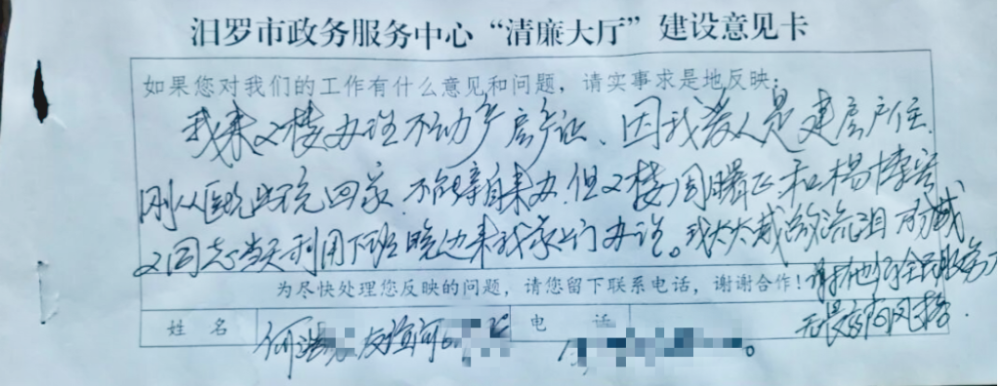 汨罗市政务服务中心“清廉大厅”建设意见卡
如果您对我们的工作有什么意见和问题，请实事求是地反映：
我来2楼办证不动产房产证、因我爱人是建房户主、
刚从医院出院回家、不能亲自来办、但2楼周曙正和杨博
2同志当天利用下班晚边来我家上门办证。我太太感激流泪 万分感
谢他们全民服务
为尽快处理您反映的问题，请您留下联系电话，谢谢合作！
无畏 风格.
姓 名 何 电 话